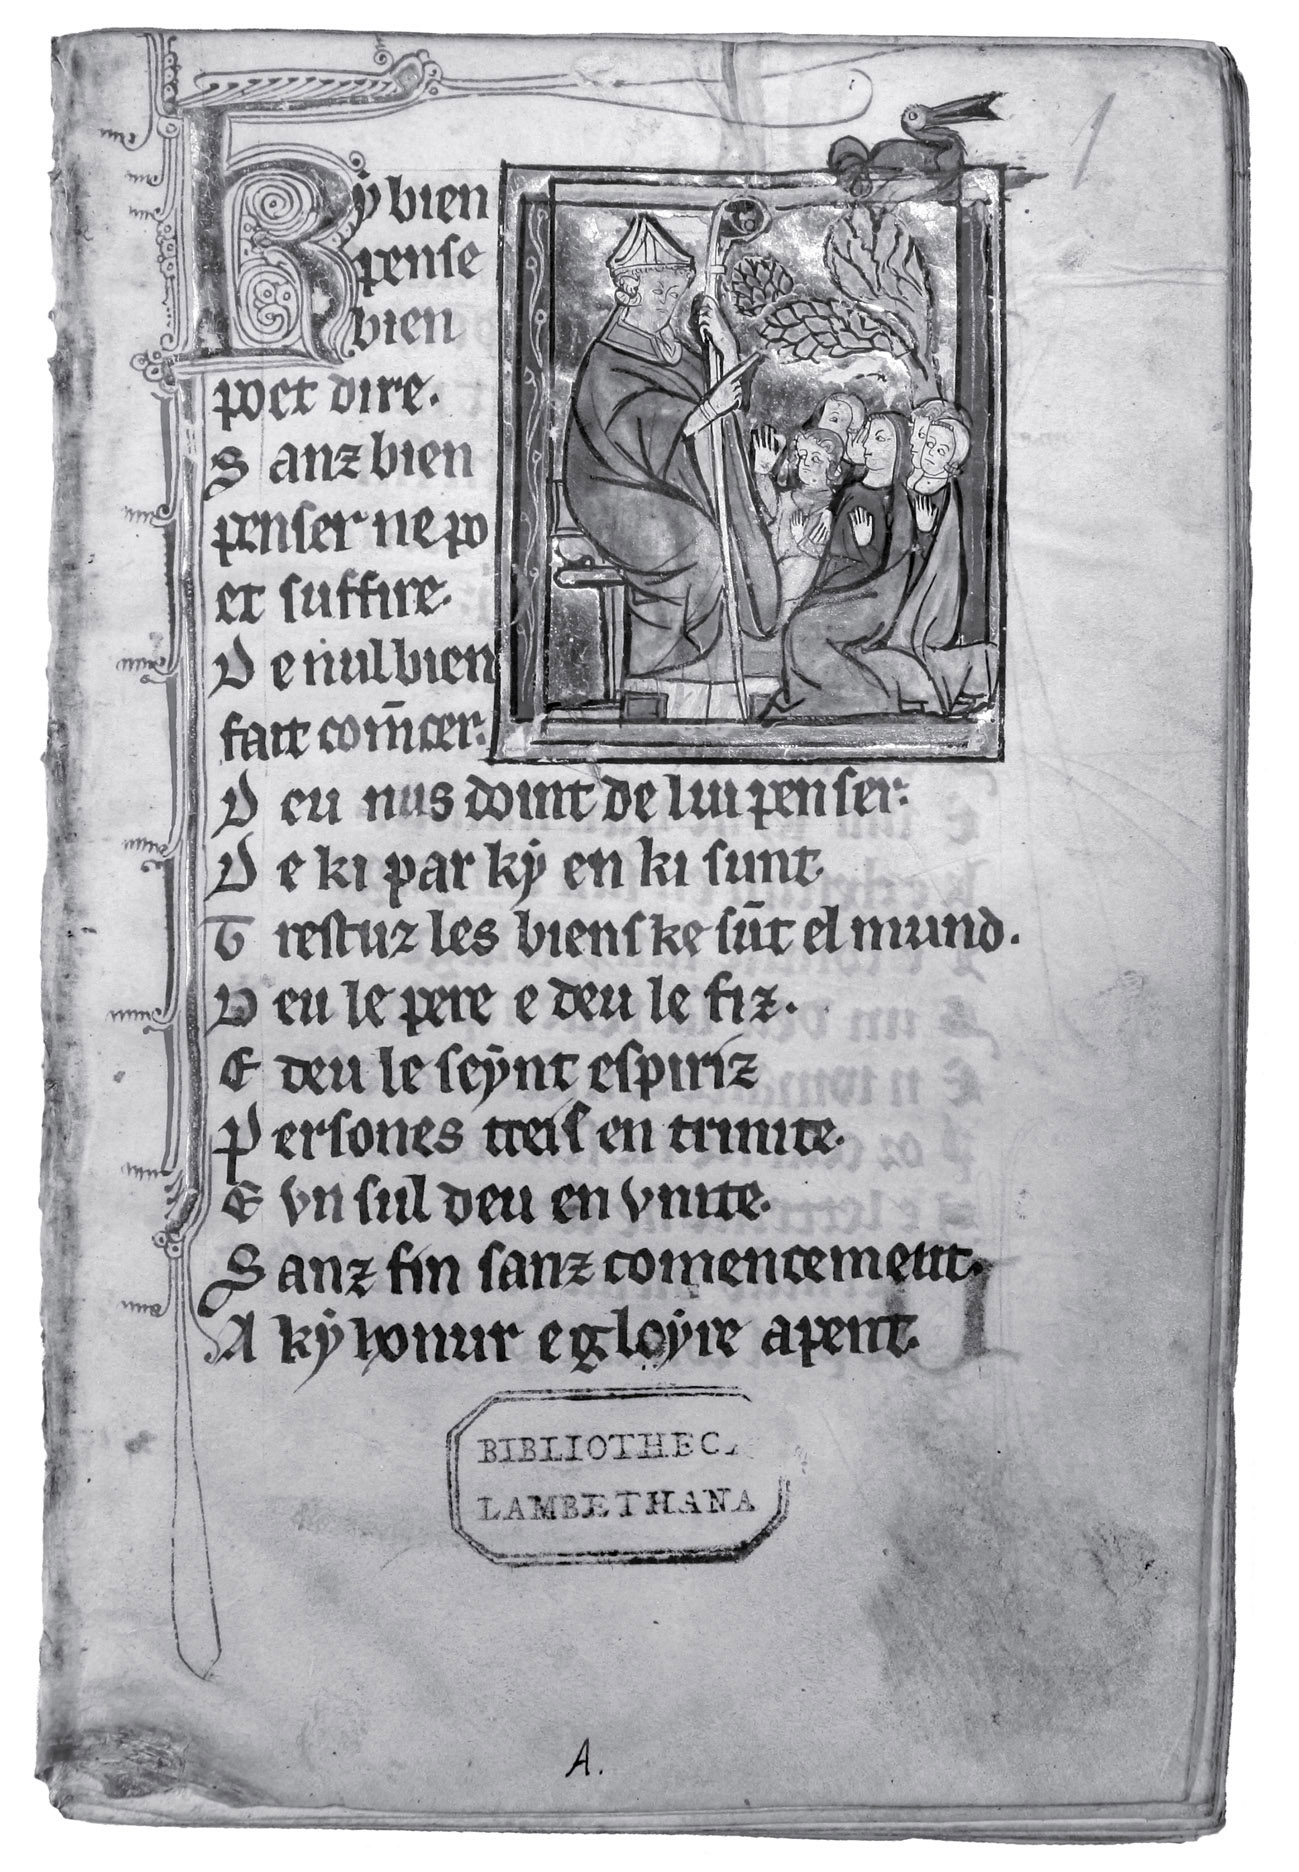 1
Ky bien
pense
bien
poet dire.
Sanz bien
penser ne po
et suffire.
De nul bien
fait com̄cer.
Deu nus doint de lui penser.
De ki par ky en ki sunt
Trestuz les biens ke sūt el mund.
Deu le pere e deu le fiz.
E deu le seynt espiriz
Persones treis en trinite.
E vn sul deu en vnite.
Sanz fin sanz comencement.
A ky honur e gloyre apent.
BIBLIOTHECA
LAMBETHANA
A.